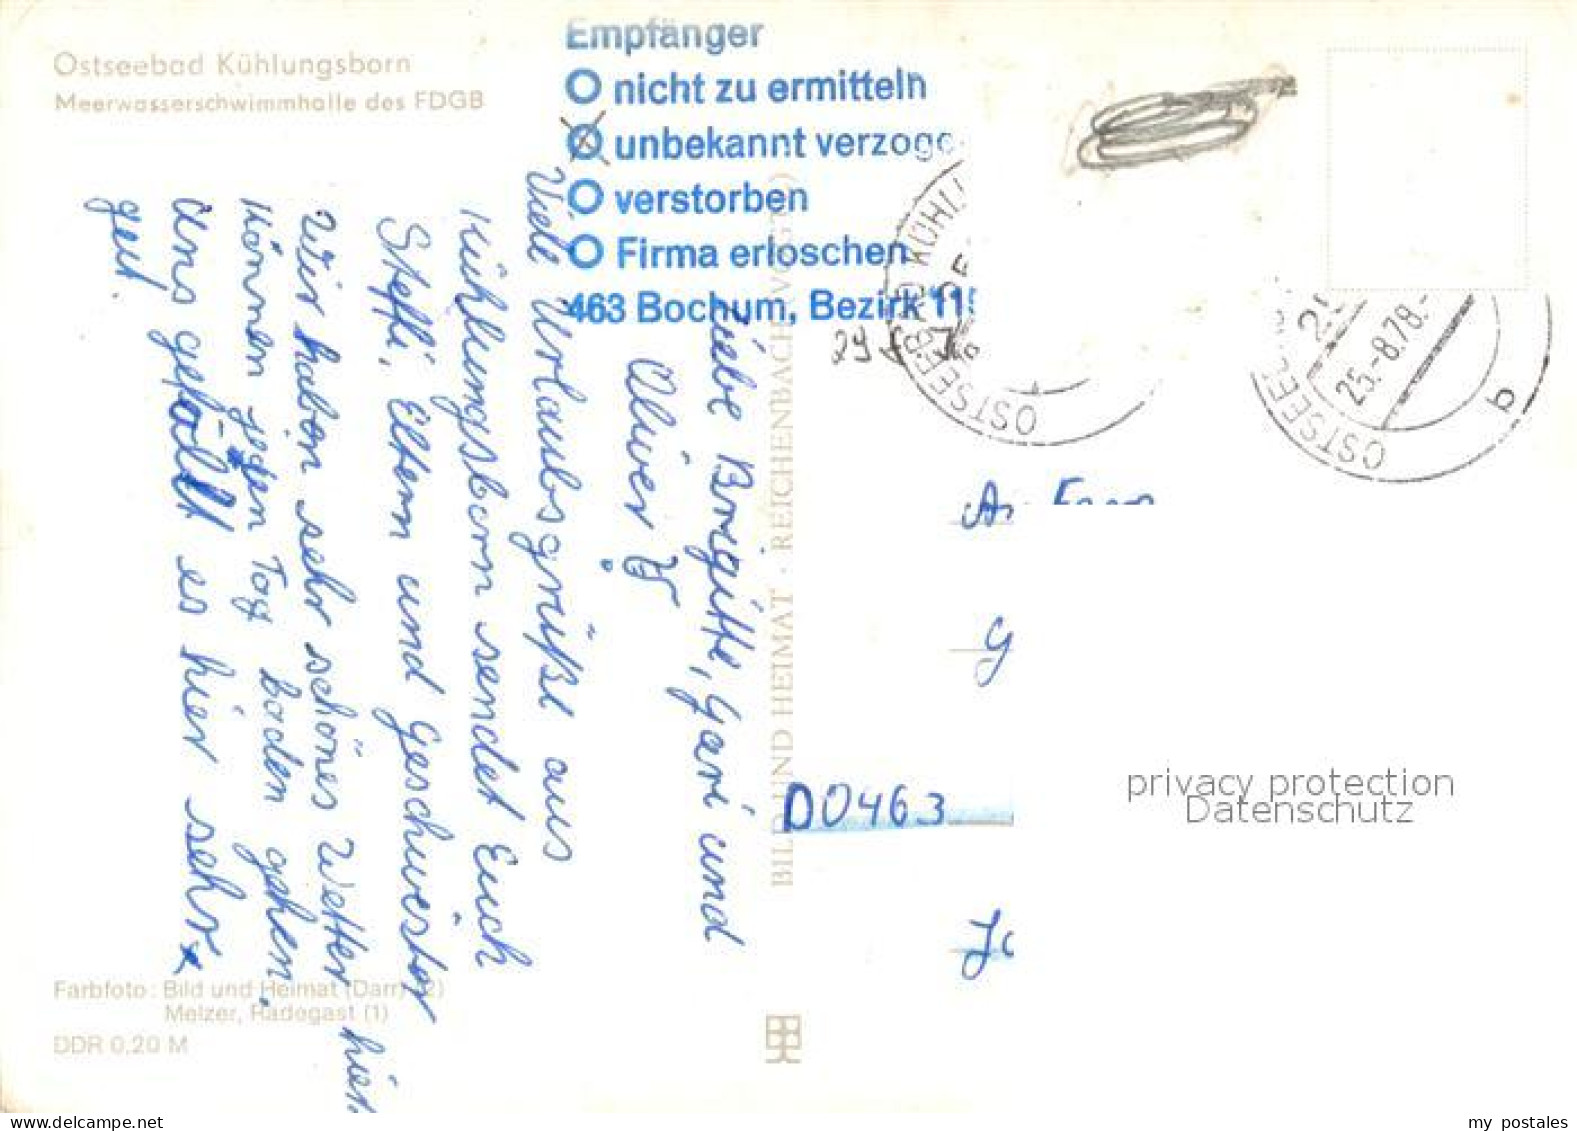 Ostseebad Kühlungsborn
Meerwasserschwimmhalle des FDGB
Empfänger
nicht zu ermitteln
unbekannt verzoge
verstorben
Firma erloschen
463 Bochum, Bezirk 115
Liebe Brigitte, Gari und
Oliver!
Viele Urlaubsgrüße aus
Kühlungsborn sendet Euch
Steffi, Eltern und Geschwister
Wir haben sehr schönes Wetter hier.
Können jeden Tag baden gehen.
Uns gefällt es hier sehr
gut.
OSTSEEBAD KÜHLU
29
OSTSEEB
25.-8.78.-
b
D0463
BILD UND HEIMAT · REICHENBACH (VOGTL)
privacy protection
Datenschutz
Farbfoto: Bild und Heimat (Darr) (2)
Melzer, Radegast (1)
DDR 0,20 M
www.delcampe.net
my_postales